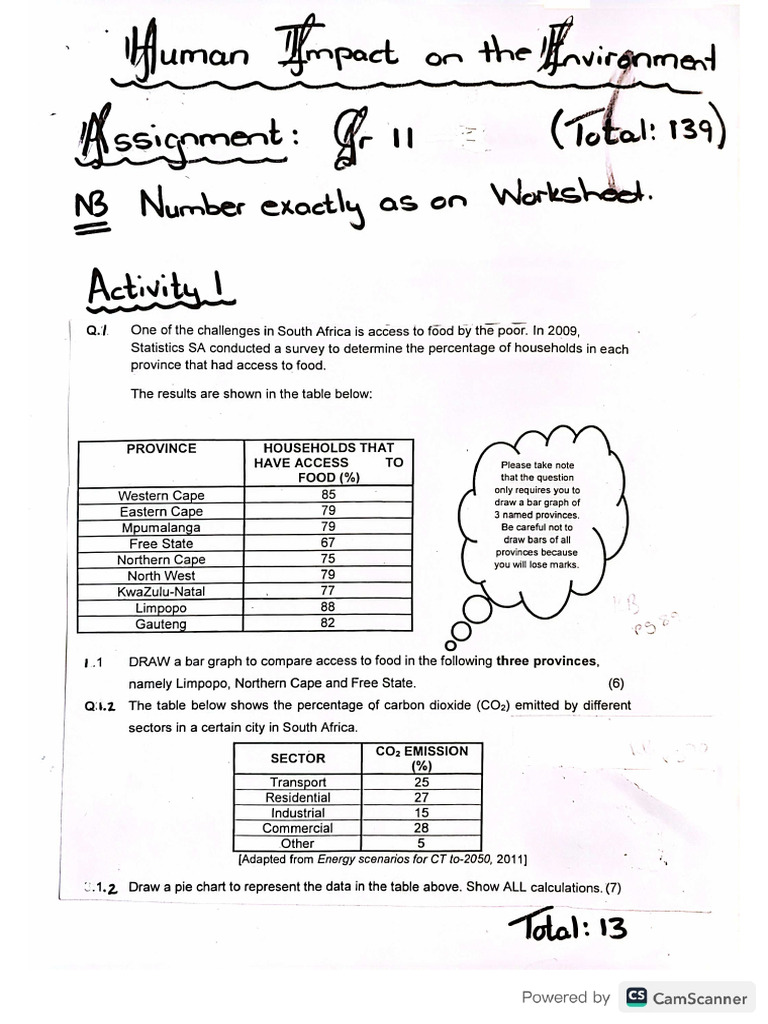 Human Impact on the Environment
Assignment: Gr 11 (Total: 139)
NB Number exactly as on Worksheet.
Activity 1
Q.1 One of the challenges in South Africa is access to food by the poor. In 2009,
Statistics SA conducted a survey to determine the percentage of households in each
province that had access to food.
The results are shown in the table below:
PROVINCE HOUSEHOLDS THAT
HAVE ACCESS TO
FOOD (%)
Western Cape 85
Eastern Cape 79
Mpumalanga 79
Free State 67
Northern Cape 75
North West 79
KwaZulu-Natal 77
Limpopo 88
Gauteng 82
Please take note
that the question
only requires you to
draw a bar graph of
3 named provinces.
Be careful not to
draw bars of all
provinces because
you will lose marks.
1.1 DRAW a bar graph to compare access to food in the following three provinces,
namely Limpopo, Northern Cape and Free State. (6)
Q.1.2 The table below shows the percentage of carbon dioxide (CO₂) emitted by different
sectors in a certain city in South Africa.
SECTOR CO₂ EMISSION
(%)
Transport 25
Residential 27
Industrial 15
Commercial 28
Other 5
[Adapted from Energy scenarios for CT to-2050, 2011]
.1.2 Draw a pie chart to represent the data in the table above. Show ALL calculations. (7)
Total: 13
Powered by CS CamScanner